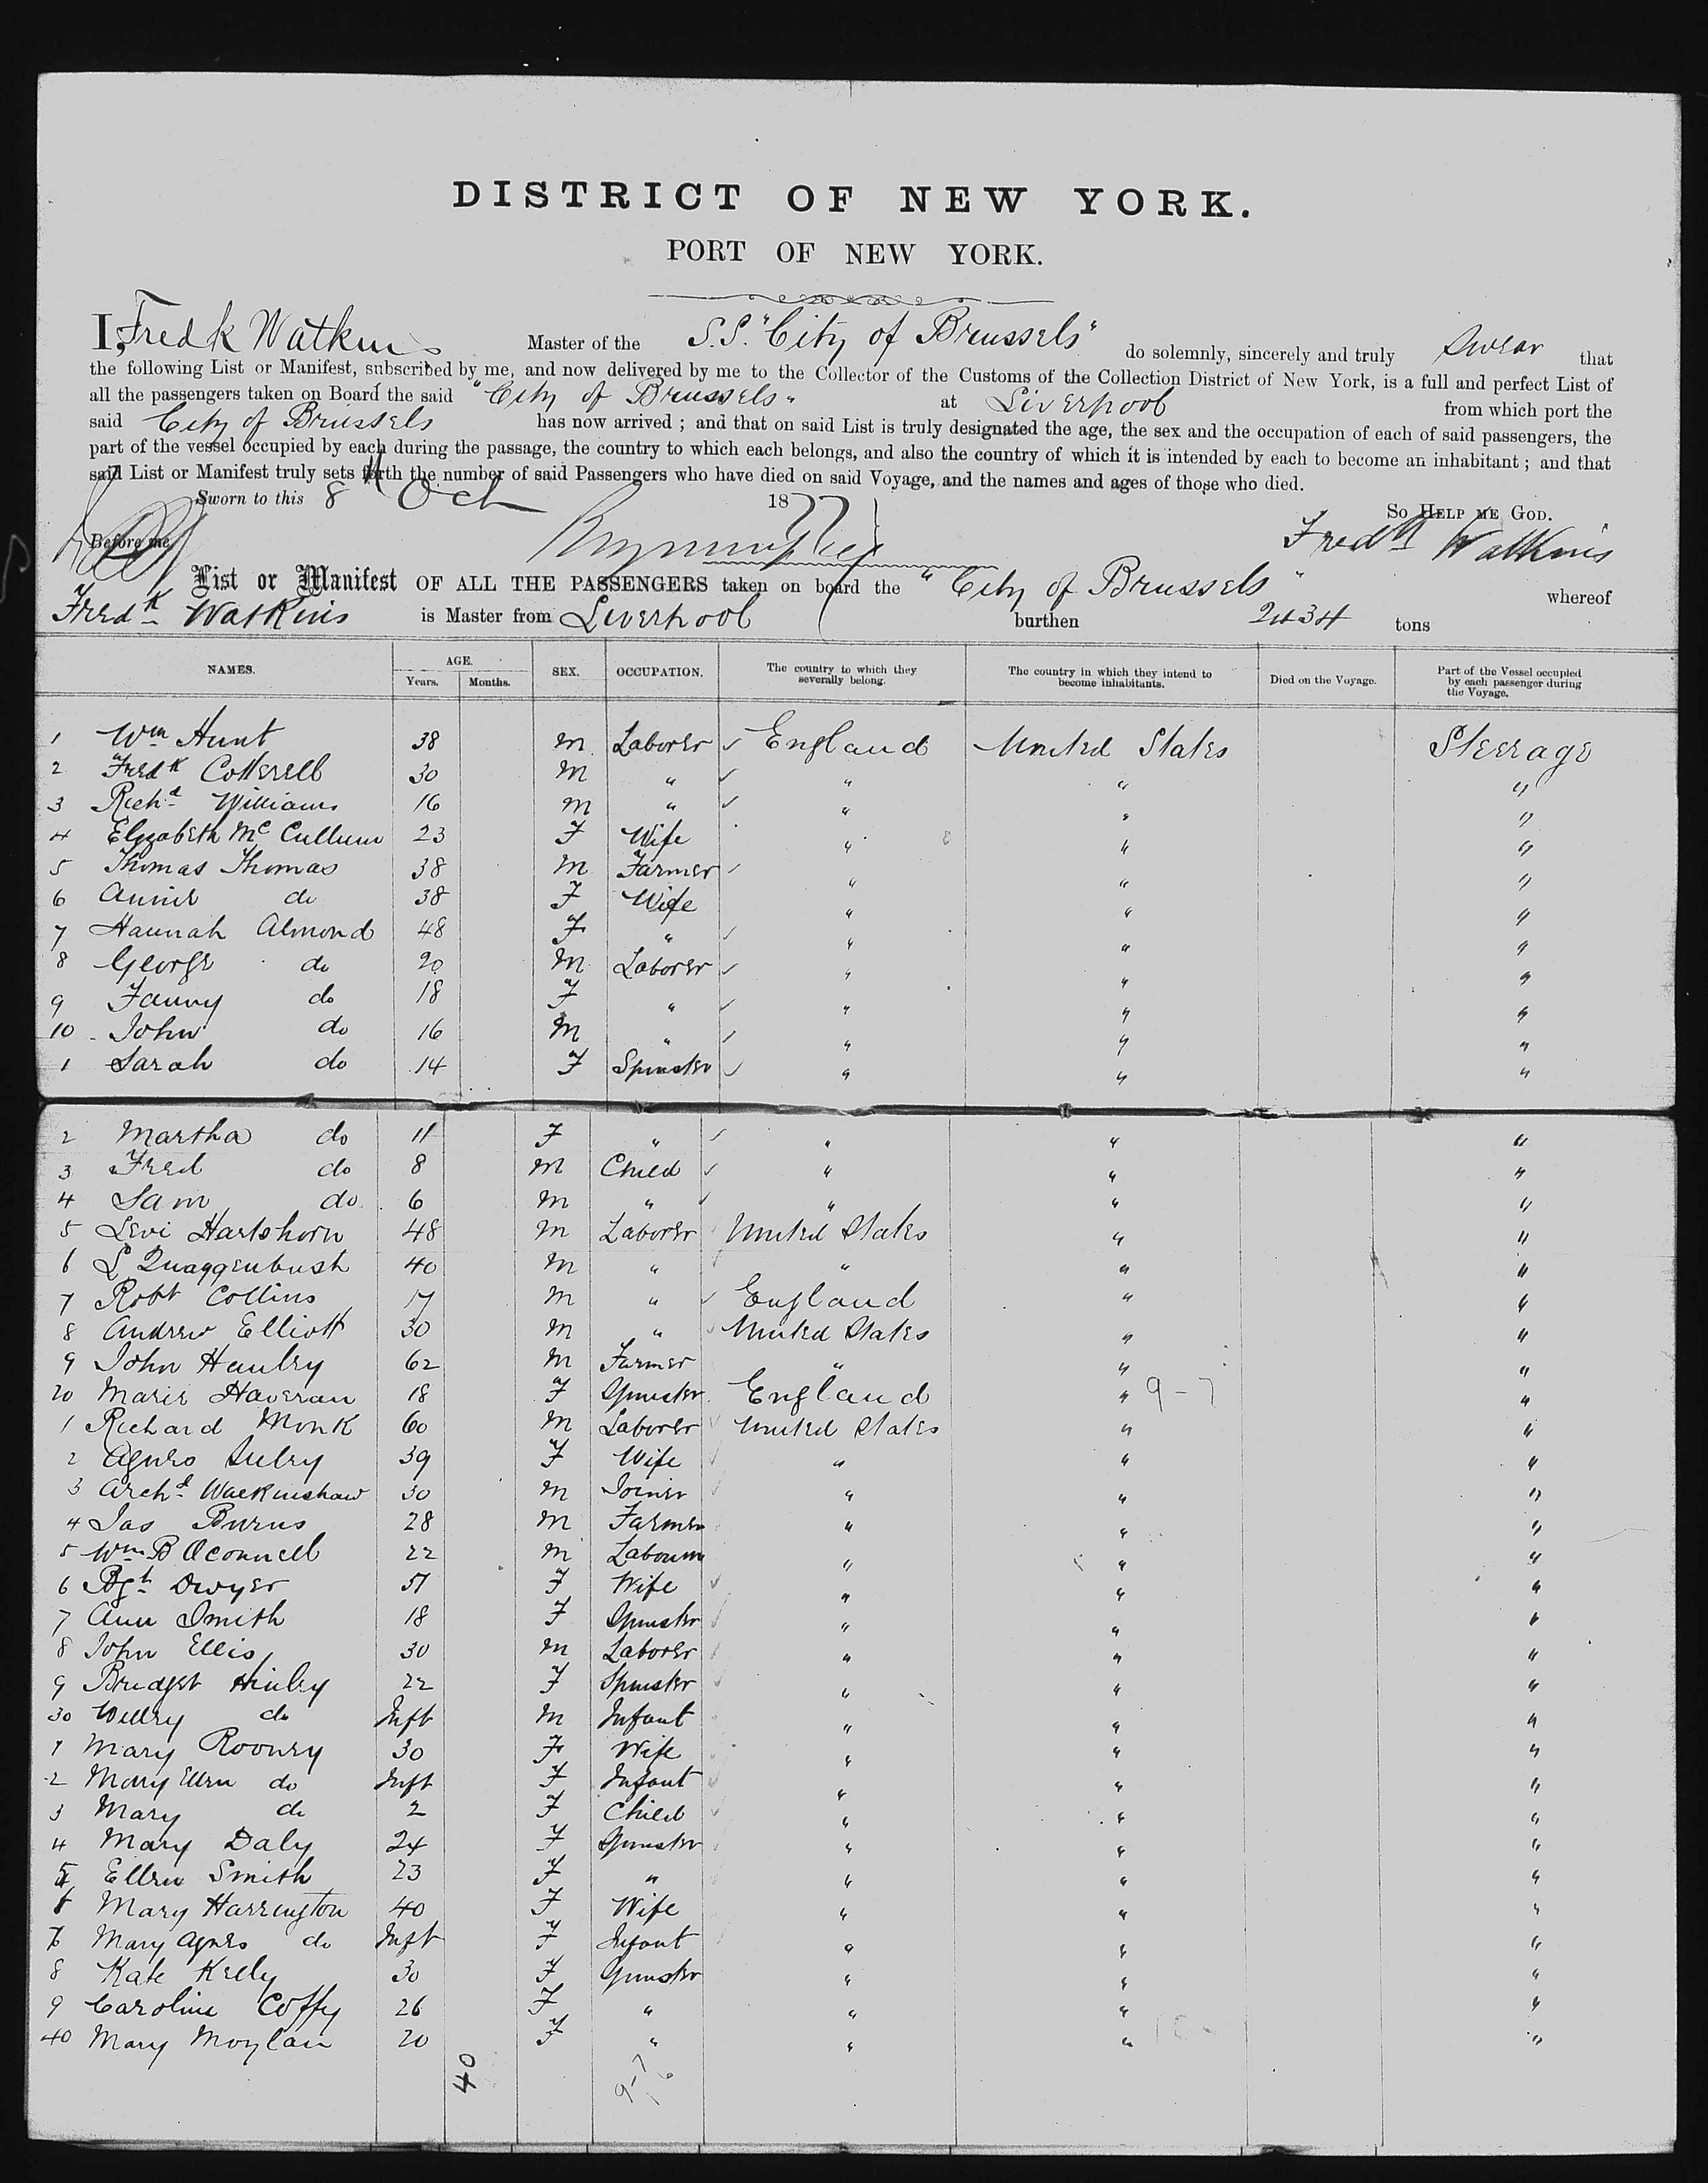 DISTRICT OF NEW YORK.
PORT OF NEW YORK.
I, Fredk Watkins Master of the S.S. "City of Brussels" do solemnly, sincerely and truly swear that
the following List or Manifest, subscribed by me, and now delivered by me to the Collector of the Customs of the Collection District of New York, is a full and perfect List of
all the passengers taken on Board the said "City of Brussels" at Liverpool from which port the
said City of Brussels has now arrived ; and that on said List is truly designated the age, the sex and the occupation of each of said passengers, the
part of the vessel occupied by each during the passage, the country to which each belongs, and also the country of which it is intended by each to become an inhabitant ; and that
said List or Manifest truly sets forth the number of said Passengers who have died on said Voyage, and the names and ages of those who died.
Sworn to this 8th Oct 1877 So HELP ME GOD.
Before me Fredk Watkins
List or Manifest OF ALL THE PASSENGERS taken on board the "City of Brussels" whereof
Fredk Watkins is Master from Liverpool burthen 2434 tons
NAMES. AGE. Years. Months. SEX. OCCUPATION. The country to which they severally belong. The country in which they intend to become inhabitants. Died on the Voyage. Part of the Vessel occupied by each passenger during the Voyage.
1 Wm Hunt 38 m Laborer England United States Steerage
2 Fredk Cotterell 30 m " " " "
3 Richd Williams 16 m " " " "
4 Elizabeth McCullum 23 F Wife " " "
5 Thomas Thomas 38 m Farmer " " "
6 Annie do 38 F Wife " " "
7 Hannah Almond 48 F " " " "
8 George do 20 m Laborer " " "
9 Fanny do 18 F " " " "
10 John do 16 m " " " "
1 Sarah do 14 F Spinster " " "
2 Martha do 11 F " " " "
3 Fred do 8 m Child " " "
4 Sam do 6 m " " " "
5 Levi Hartshorn 48 m Laborer United States " "
6 L Quaggenbush 40 m " " " "
7 Robt Collins 17 m " England " "
8 Andrew Elliott 30 m " United States " "
9 John Hanley 62 m Farmer " " "
20 Marie Haveran 18 F Spinster England " 9-7 "
1 Richard Monk 60 m Laborer United States " "
2 Agnes 39 F Wife " " "
3 Archd Walkinshaw 30 m Joiner " " "
4 Jas Burns 28 m Farmer " " "
5 Wm B OConnell 22 m " " "
6 Bgt Dwyer 51 F Wife " " "
7 Ann Smith 18 F Spinster " " "
8 John Ellis 30 m Laborer " " "
9 Bridget Hinley 22 F Spinster " " "
30 Willey do Inft m Infant " " "
1 Mary Rooney 30 F Wife " " "
2 Mary Ellen do Inft F Infant " " "
3 Mary do 2 F Child " " "
4 Mary Daly 24 F Spinster " " "
5 Ellen Smith 23 F " " " "
6 Mary Harrington 40 F Wife " " "
7 Mary Agnes do Inft F Infant " " "
8 Kate Kelly 30 F Spinster " " "
9 Caroline Coffy 26 F " " " "
40 Mary Moylan 20 F " " " "
40
9-7